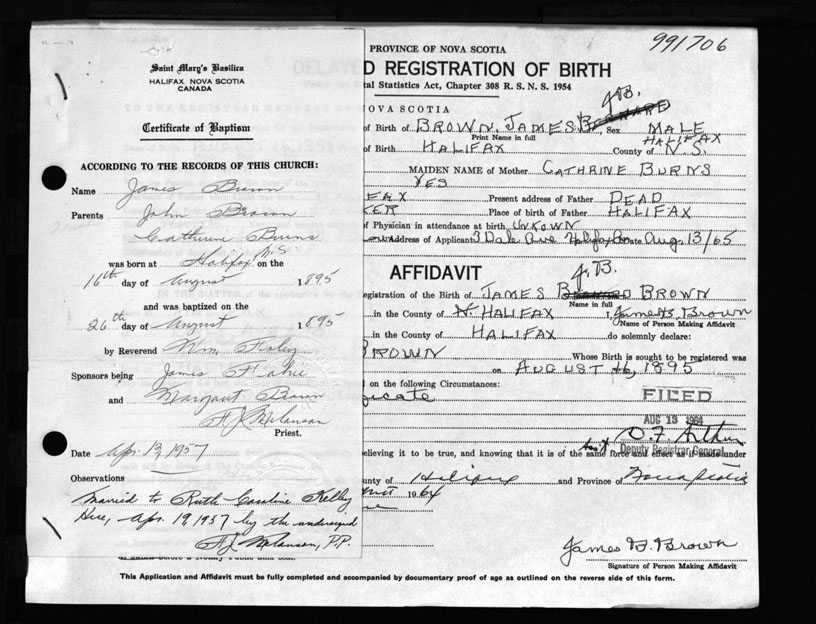 Saint Mary's Basilica
HALIFAX NOVA SCOTIA
CANADA
Certificate of Baptism
ACCORDING TO THE RECORDS OF THIS CHURCH:
Name James Brown
Parents John Brown
Catherine Burns
was born at Halifax N.S. on the
16th day of August 1895
and was baptized on the
26th day of August 1895
by Reverend Wm. Foley
Sponsors being James
and Margaret Brown
Priest.
Date Apr. 13, 1957
Observations
Married to Ruth Caroline Kelley
Here, Apr. 19, 1957 by the undersigned
P.P.
991706
PROVINCE OF NOVA SCOTIA
D REGISTRATION OF BIRTH
tal Statistics Act, Chapter 308 R. S. N. S. 1954
NOVA SCOTIA
J.B.
of Birth of BROWN, JAMES Sex MALE
Print Name in full
HALIFAX
of Birth HALIFAX County of N.S.
MAIDEN NAME of Mother CATHRINE BURNS
YES
FAX Present address of Father DEAD
KER Place of birth of Father HALIFAX
of Physician in attendance at birth UNKOWN
Address of Applicant 3 Dale Ave Halifax Date Aug. 13/65
AFFIDAVIT
J.B.
egistration of the Birth of JAMES BROWN
Name in full
in the County of HALIFAX I, James B. Brown
Name of Person Making Affidavit
in the County of HALIFAX do solemnly declare:
BROWN Whose Birth is sought to be registered was
on AUGUST 16, 1895
on the following Circumstances:
ficate
FILED
AUG 13 1964
Deputy Registrar General
elieving it to be true, and knowing that it is of the same force and effect as if made under
unty of Halifax and Province of Nova Scotia
1964
James B. Brown
Signature of Person Making Affidavit
This Application and Affidavit must be fully completed and accompanied by documentary proof of age as outlined on the reverse side of this form.